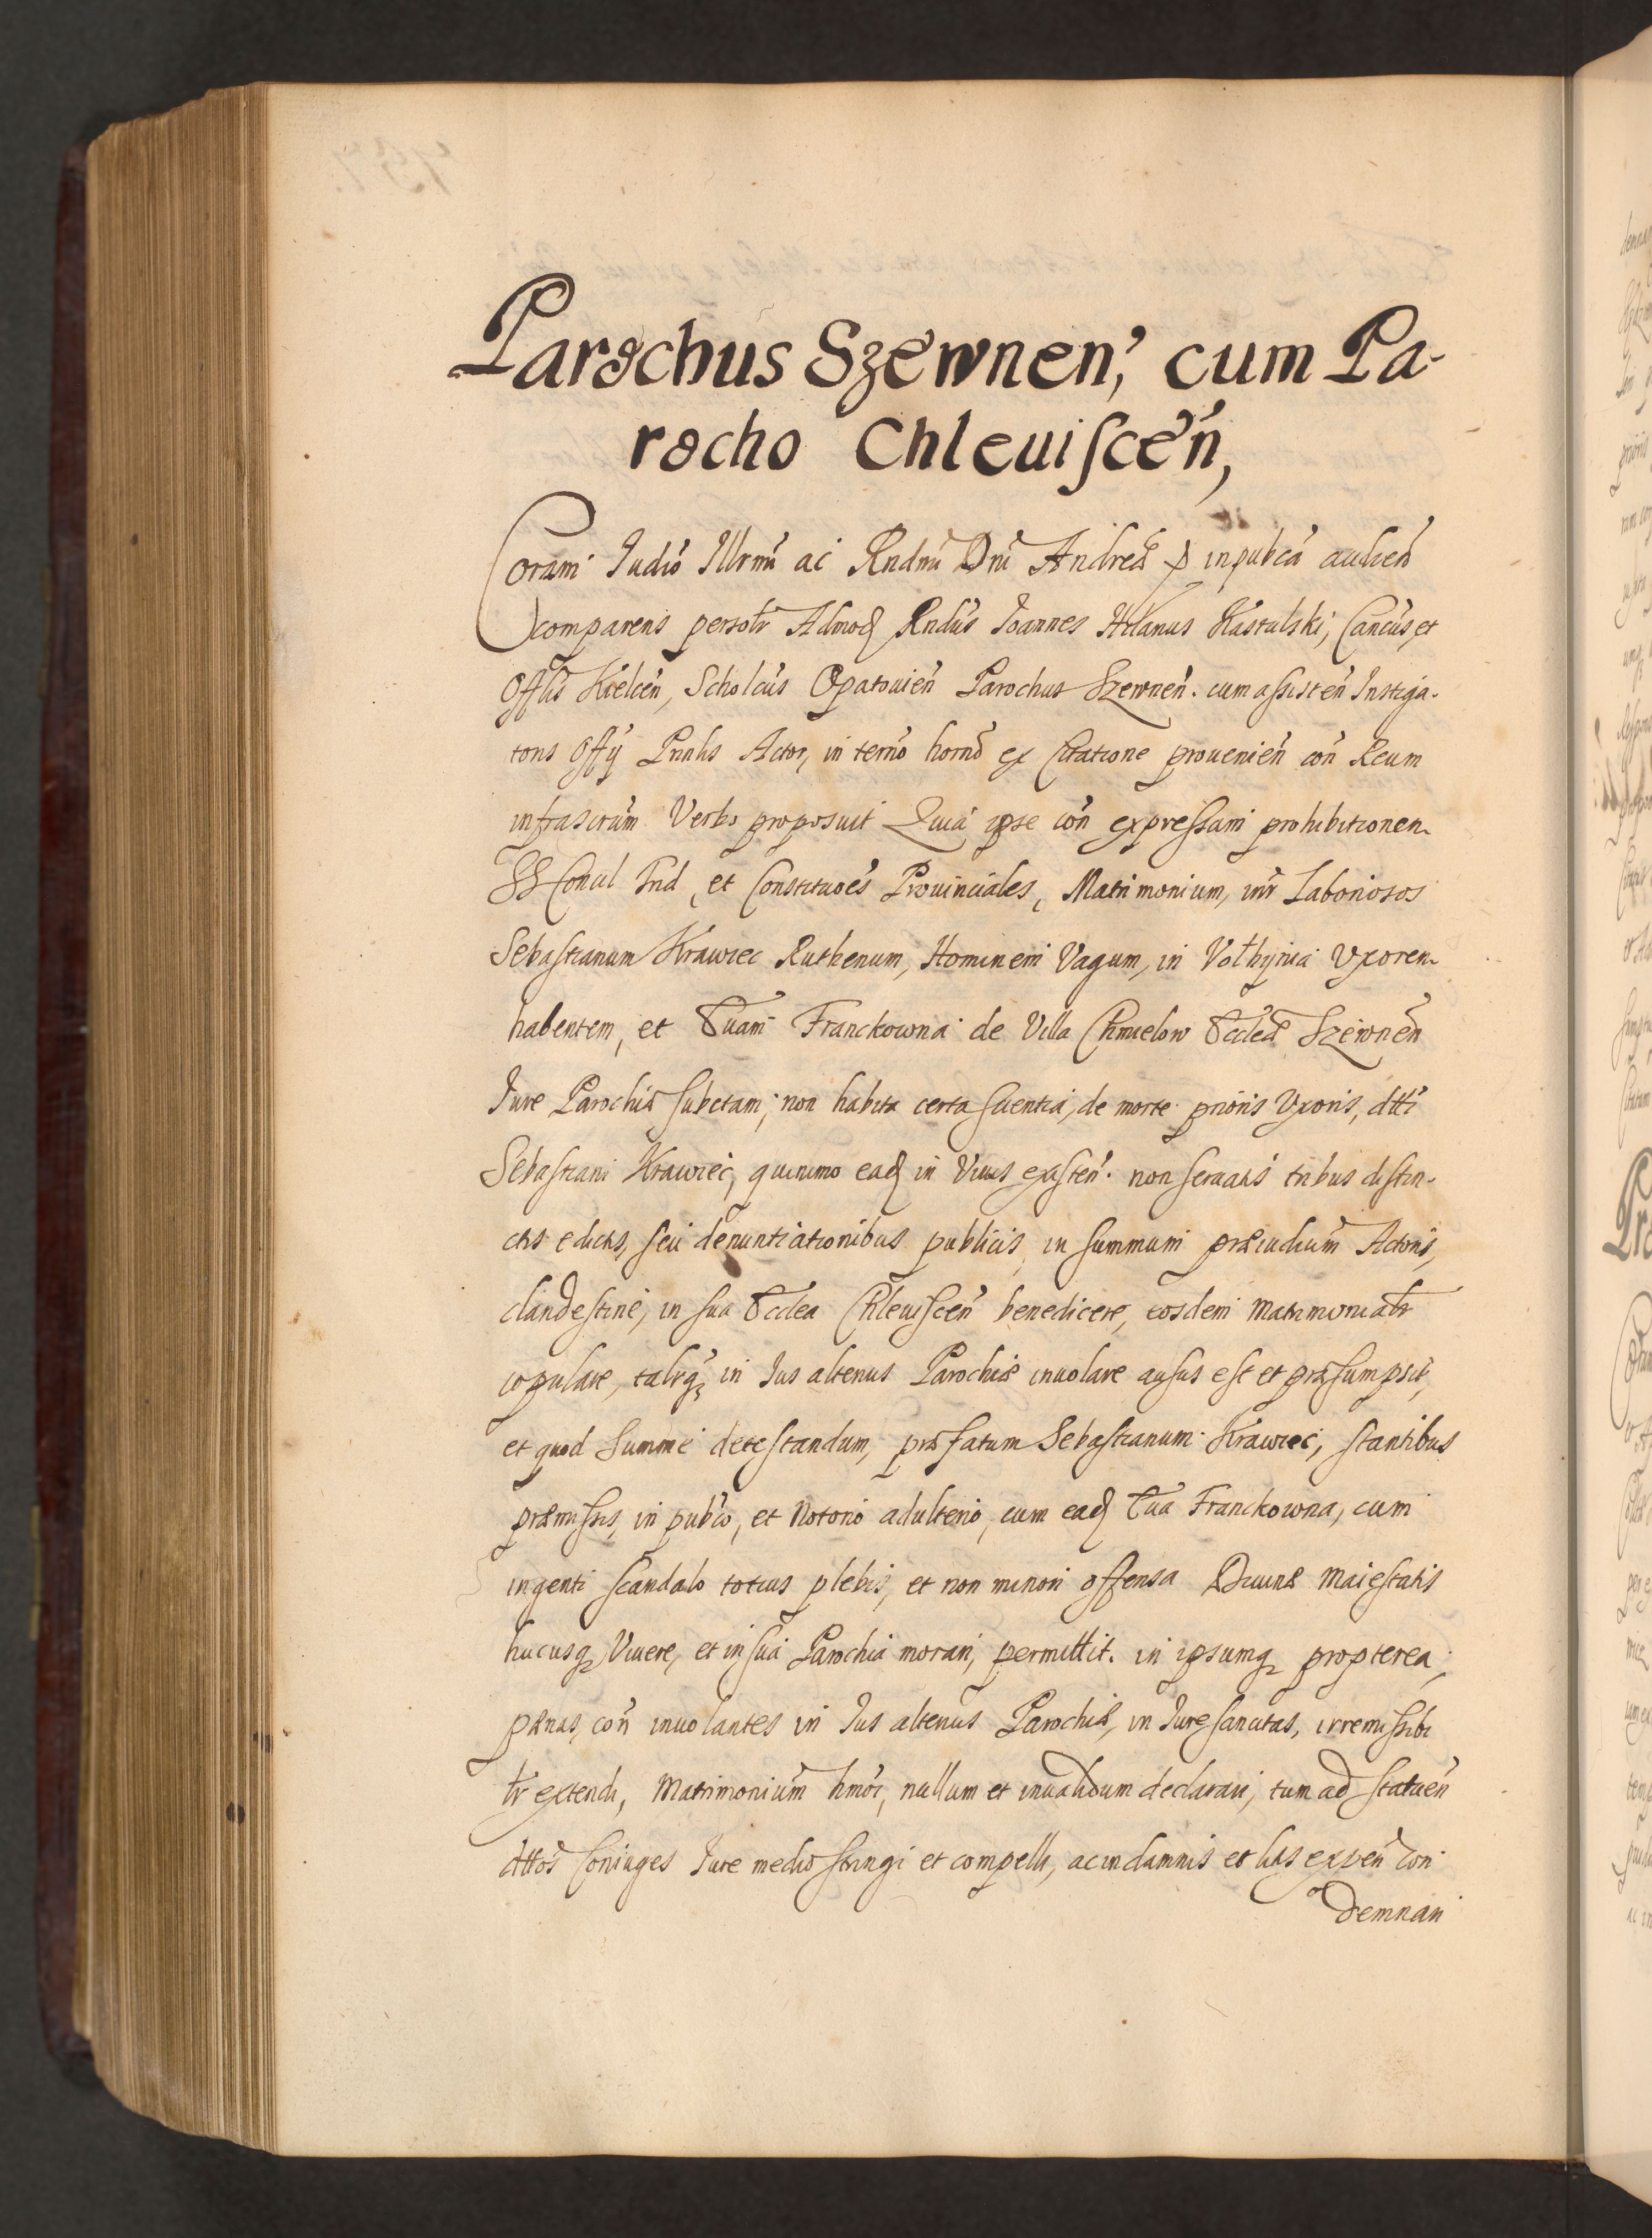 Parochus Szewnen, cum Pa-
rocho Chleuiscen,
Coram Judio Illrmi ac Rndmi Dni Andreæ p in publca audien
comparens persolr Admod Rndus Joannes Kastulski, Cancus, et
Offlis Kielcen, Scholcus Opatouien Parochus Szewnen. cum assisten Instiga-
toris Offij Pnnlis Actor, in terno horno ex Citatione prouenien con Reum
infrascrum Verbo proposuit Quia ipse con expressam prohibitionem
SS Concil Trid, et Constituoes Prouinciales, Matrimonium, intr Laboriosos
Sebastianum Krawiec Ruthenum, Hominem Vagum, in Volhynia Vxorem
habentem, et Euam Franckowna de Villa Chmielow Eccleæ Szewnen
Jure Parochiæ subctam, non habita certa scientia, de morte prioris Vxoris, dtti
Sebastiani Krawiec, quinimo ead in Viuis existen. non seruatis tribus distin-
ctis edictis, seu denuntiationibus publicis, in summum præiudium Actoris,
clandestine, in sua Ecclea Chleuiscen benedicere, eosdem matrimonialr
copulare, talrq in Jus alterius Parochiæ inuolare ausus est et præsumpsit,
et quod summe detestandum, præfatum Sebastianum Krawiec, stantibus
præmissis, in publco, et notorio adulterio, cum ead Eua Franckowna, cum
ingenti scandalo totius plebis, et non minori offensa Diuinæ Maiestatis
hucusq Viuere, et in sua Parochia morari, permittit. in ipsumq propterea,
pænas, con inuolantes in Jus alterius Parochiæ, in Jure sancitas, irremissibi
lr extendi, Matrimonium hmoi, nullum et inualidum declarari, tum ad statuen
dttos Coniuges Jure medio stringi et compelli, ac in damnis et litis expen con
demnari